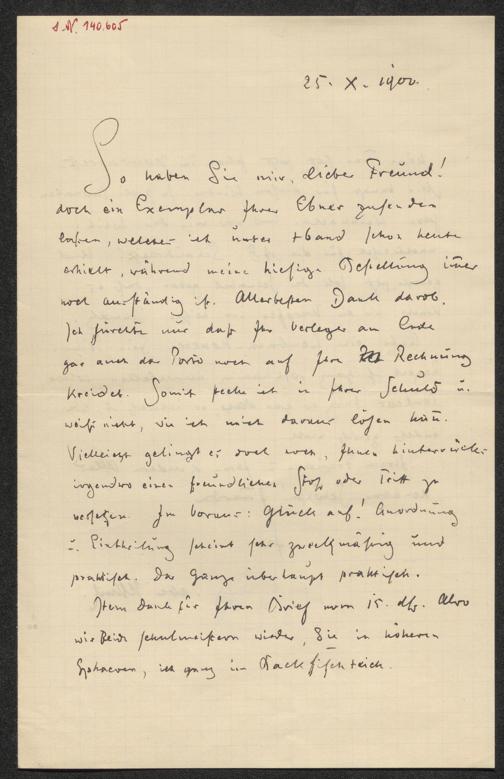 J. N. 140.605
25. X. 1900.
So haben Sie mir, lieber Freund!
doch ein Exemplar Ihrer Ebner zusenden
lassen, welches ich unter +band schon heute
erhielt, während meine hiesige Bestellung imer
noch ausständig ist. Allerbesten Dank darob.
Ich fürchte nur daß Ihr Verleger am Ende
gar auch das Porto noch auf Ihre Rechnung
kreidet. Somit stecke ich in Ihrer Schuld u.
weiß nicht, wie ich mich daraus lösen kann.
Vielleicht gelingt es doch noch, Ihnen hinterrücks
irgendwo einen freundlichen Stoß oder Tritt zu
versetzen. Im Voraus: Glück auf! Anordnung
u. Eintheilung scheint sehr zweckmäßig und
praktisch. Das Ganze überhaupt praktisch.
Item Dank für Ihren Brief vom 15. ds. Also
wir Beide schulmeistern wieder, Sie in höheren
Sphaeren, ich ganz im Backfischteich.